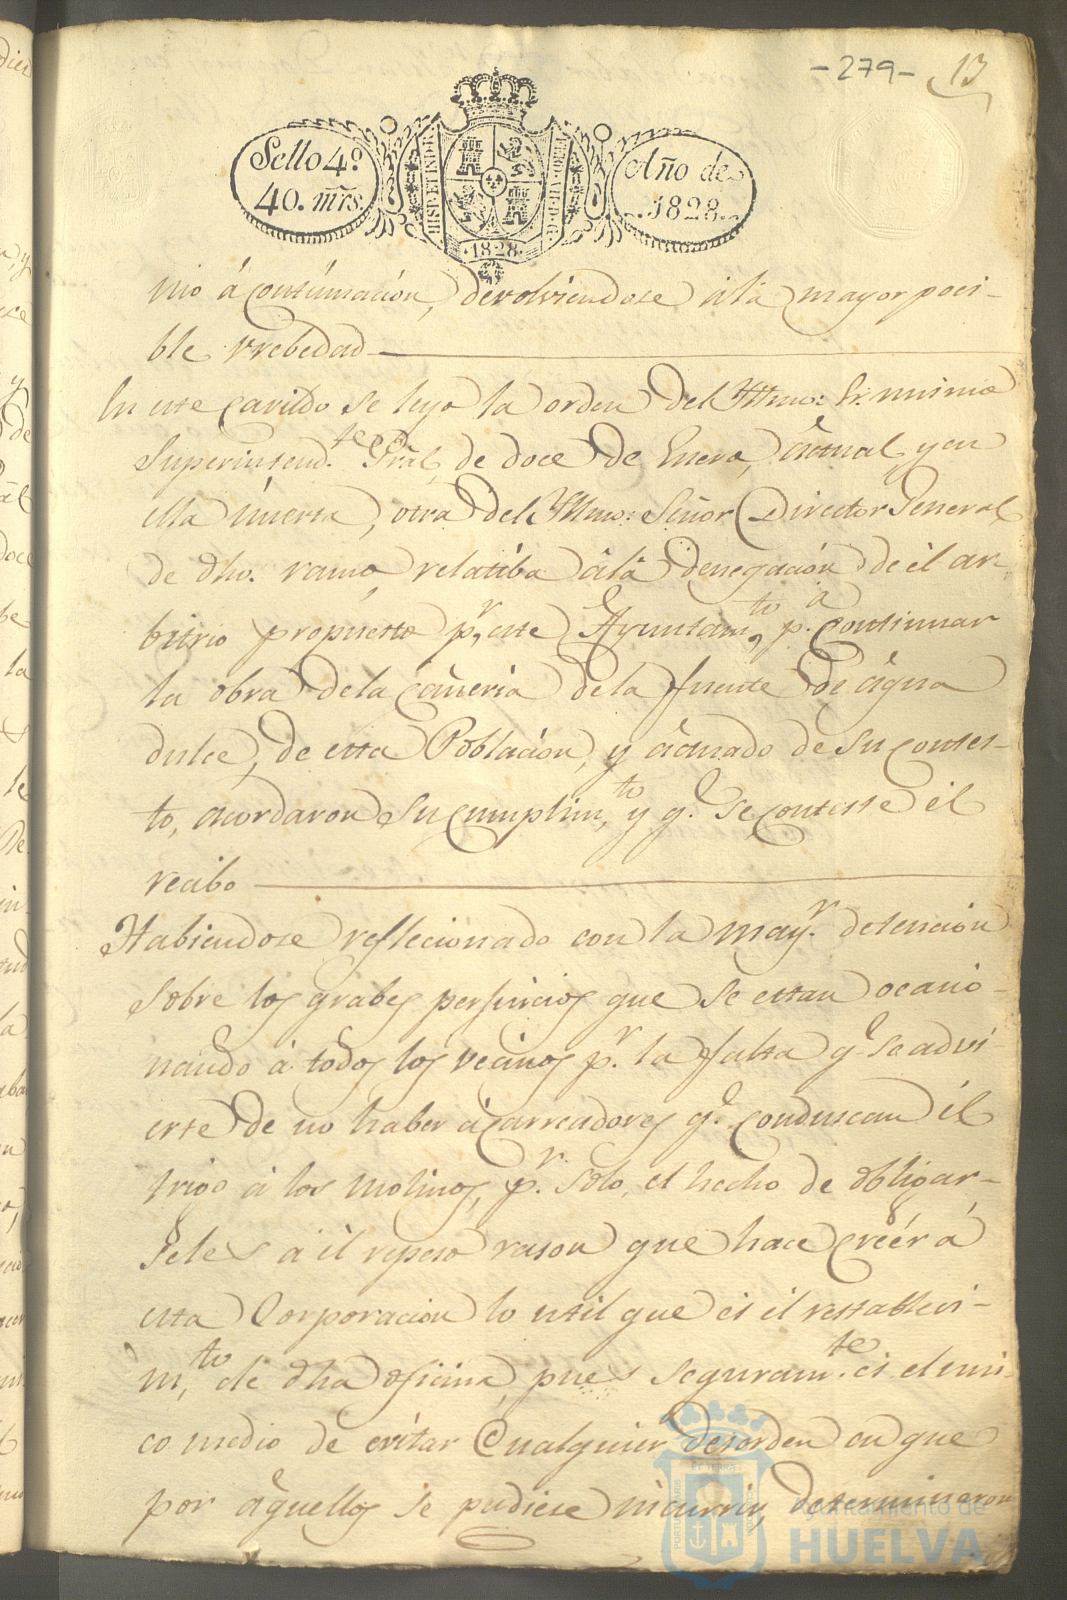 -279- 13
Sello 4º
40. mrs.
HISP. ET IND. R
FERD. VII. D. G.
·1828·
Año de
1828.
nio á continuacion, devolviendose álà mayor poci-
ble vrebedad
En este cavildo se leyo la orden del Yltmo: Sr.
Superintend.te Gràl, de doce de Enero, áctual, y en
ella ínserta, otra del Yltmo: Señor Director General
de dho. ramo relatiba álà denegación de èl ar-
bitrio propuesto p.r este Ayuntam.to, p.a continuar
la obra de la Cañeria de la fuente de água
dulce, de esta Poblacion, y áctuado de su contes-
to, acordaron su cumplim.to, y q.e se conteste él
recibo
Habiendose reflecionado con la may.r detencion
sobre los grabes perjuicios que se estan ocacio-
nando á todos los vecinos p.r la falta q.e se advi-
erte de no haber ácarreadores q.e conduscan él
trigo á los molinos, p.r solo, el hecho de obligar-
seles á él repeso rason que hace creér á
esta Corporacion lo util que es él restableci-
m.to de dha oficina, pues seguram.te es el uni-
co medio de evitar Cualquier desorden en que
por áquellos se pudiese incurrir, determinaron
Ayuntamiento de
HUELVA